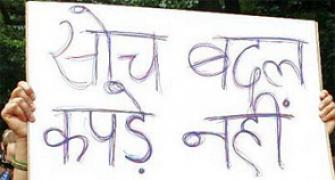 सोच बदल
कपड़े नहीं